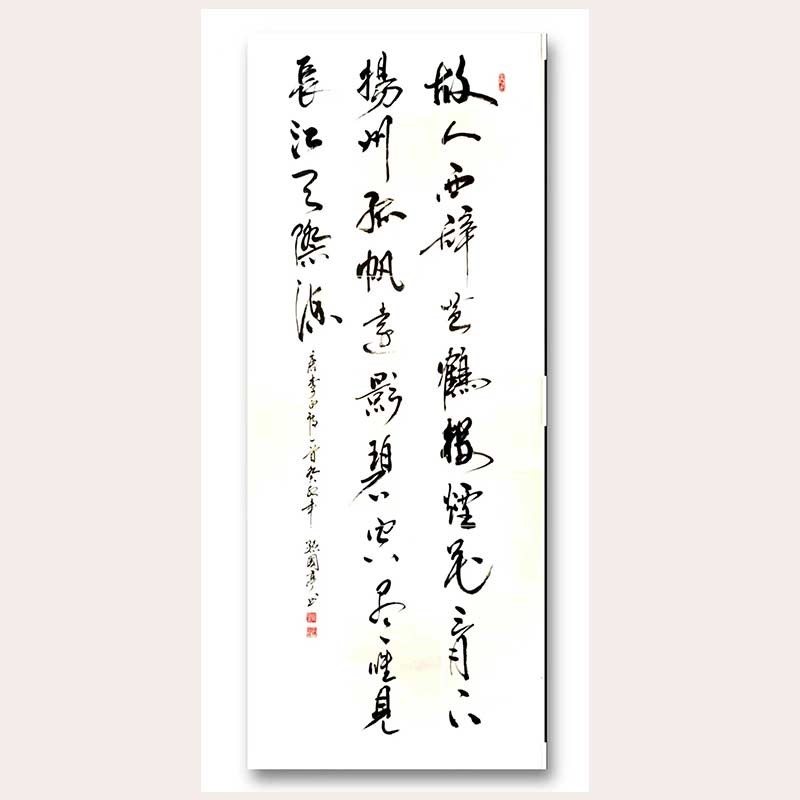 故人西辞黄鶴楼煙花三月下
揚州孤帆遠影碧空尽唯見
長江天際流
唐李白詩一首癸巳年
國亭书